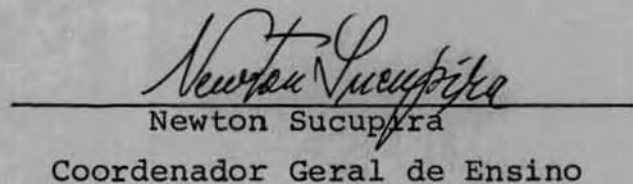 Newton Sucupira
Newton Sucupira
Coordenador Geral de Ensino